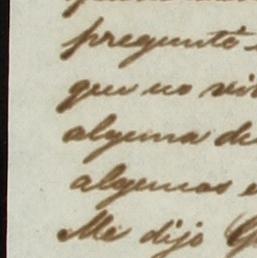 preguntó
que no
alguna de
algunas
Me dijo